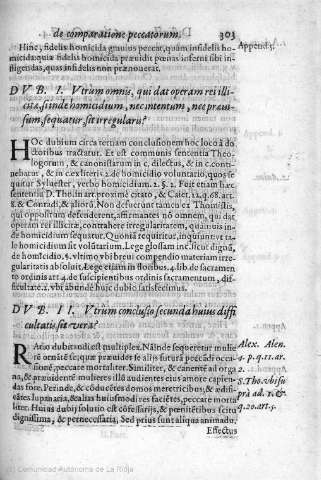 de comparatione peccatorum. 303
Hinc, fidelis homicida grauius peccat, quàm infidelis ho-
micida: quia fidelis homicida præuidit pœnas inferni sibi in-
fligendas, quas infidelis non prænouerat.
DVB. I. Vtrum omnis, qui dat operam rei illi-
citæ, si inde homicidium, nec intentum, nec præui-
sum, sequatur, sit irregularis?
HOc dubium circa tertiam conclusionem hoc loco à do-
ctoribus tractatur. Et est communis sententia Theo-
logorum, & canonistarum in c. dilectus, & in c. conti-
nebatur, & in c. ex literis 2. de homicidio voluntario, quos se-
quitur Syluester, verbo homicidium. 2. §. 2. Fuit etiam hæc
sententia D. Tho. in art. proximè citato, & Caiet. 22. q. 68. art.
8. & Conradi, & aliorū. Non defuerunt tamen ex Thomistis,
qui oppositum defenderent, affirmantes nō omnem, qui dat
operam rei illicitæ, contrahere irregularitatem, quāuis in-
de homicidium sequatur. Quoniā requiritur, inquiunt,
le homicidium sit volūtarium. Lege glossam inc. sicut dignū,
de homicidio, §. vltimo vbi breui compendio materiam irre-
gularitatis absoluit. Lege etiam in floribus. 4. lib. de sacramen-
to ordinis art. 4. de suscipientibus ordinis sacramentum, dif-
ficultate. 2. vbi abundè huic dubio satisfecimus.
DVB. II. Vtrum conclusio secunda huius diffi
cultatis sit vera?
RAtio dubitandi est multiplex. Nā inde sequeretur mulie-
rē ornatē se, quæ præuidet se aliis futurā peccādi occa-
sionē, peccare mortaliter. Similiter, & canentē ad orga
na, & præuidentē mulieres illā audientes eius amore capien-
das fore. Perinde, & cōducētes domos meretricibus, & ædifi-
cātes lupanaria, & alias huiusmodi res facientes, peccare morta
liter. Huius dubij solutio est cōfessarijs, & pœnitētibus scitu
dignissima, & pernecessaria. Sed prius sunt aliqua animadu.
Effectus
Append. 5.
Alex. Alen.
4. p. q. 11. ar.
2.
S. Tho. vbi su
prà ad. 1. &
q. 20. art. 5.
(c) Comunidad Autónoma de La Rioja